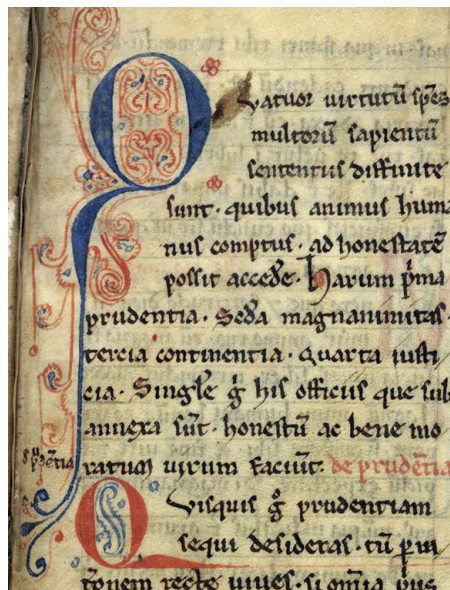 Quatuor uirtutū sp̄es
multorū sapientū
sententiis diffinite
sunt · quibus animus huma
nus comptus · ad honestatē
possit acced̄e · harum p̄ma
prudentia · Sed̄a magnanimitas ·
tercia continentia · Quarta iusti
cia · Singl̄e g̊ his officiis que sub
annexa sūt · honestū ac bene mo
ratum uirum faciūt · de prudētia
Quisquis g̊ prudentiam
sequi desideras · tū p̄ ra
t̄onem recte uiues · si om̄ia p̄us